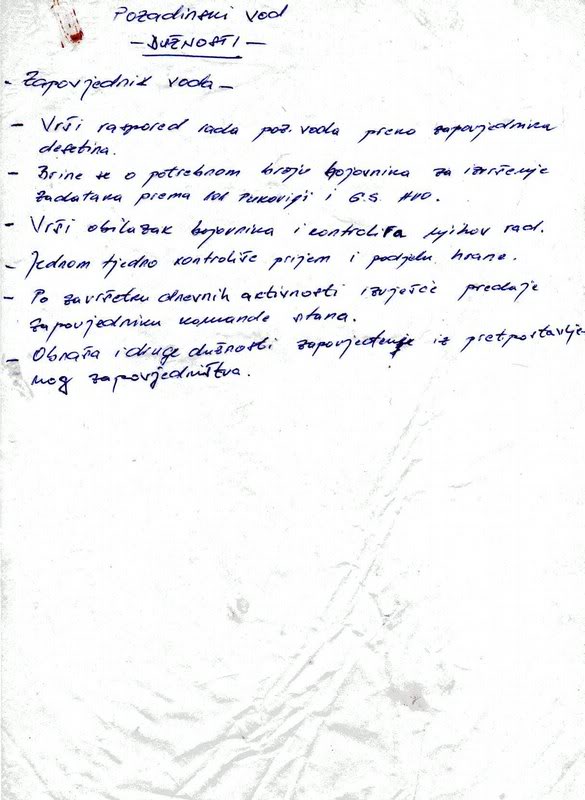 Pozadinski vod
- DUŽNOSTI -
- Zapovjednik voda -
- Vrši raspored rada poz. voda preko zapovjednika
desetina.
- Brine se o potrebnom broju bojovnika za izvršenje
zadataka prema i G.S. HVO.
- Vrši obilazak bojovnika i kontrolira njihov rad.
- Jednom tjedno kontroliše prijem i podjelu hrane.
- Po završetku dnevnih aktivnosti izvješće predaje
zapovjedniku komande stana.
- Obnaša i druge dužnosti iz pretpostavlje
nog zapovjedništva.